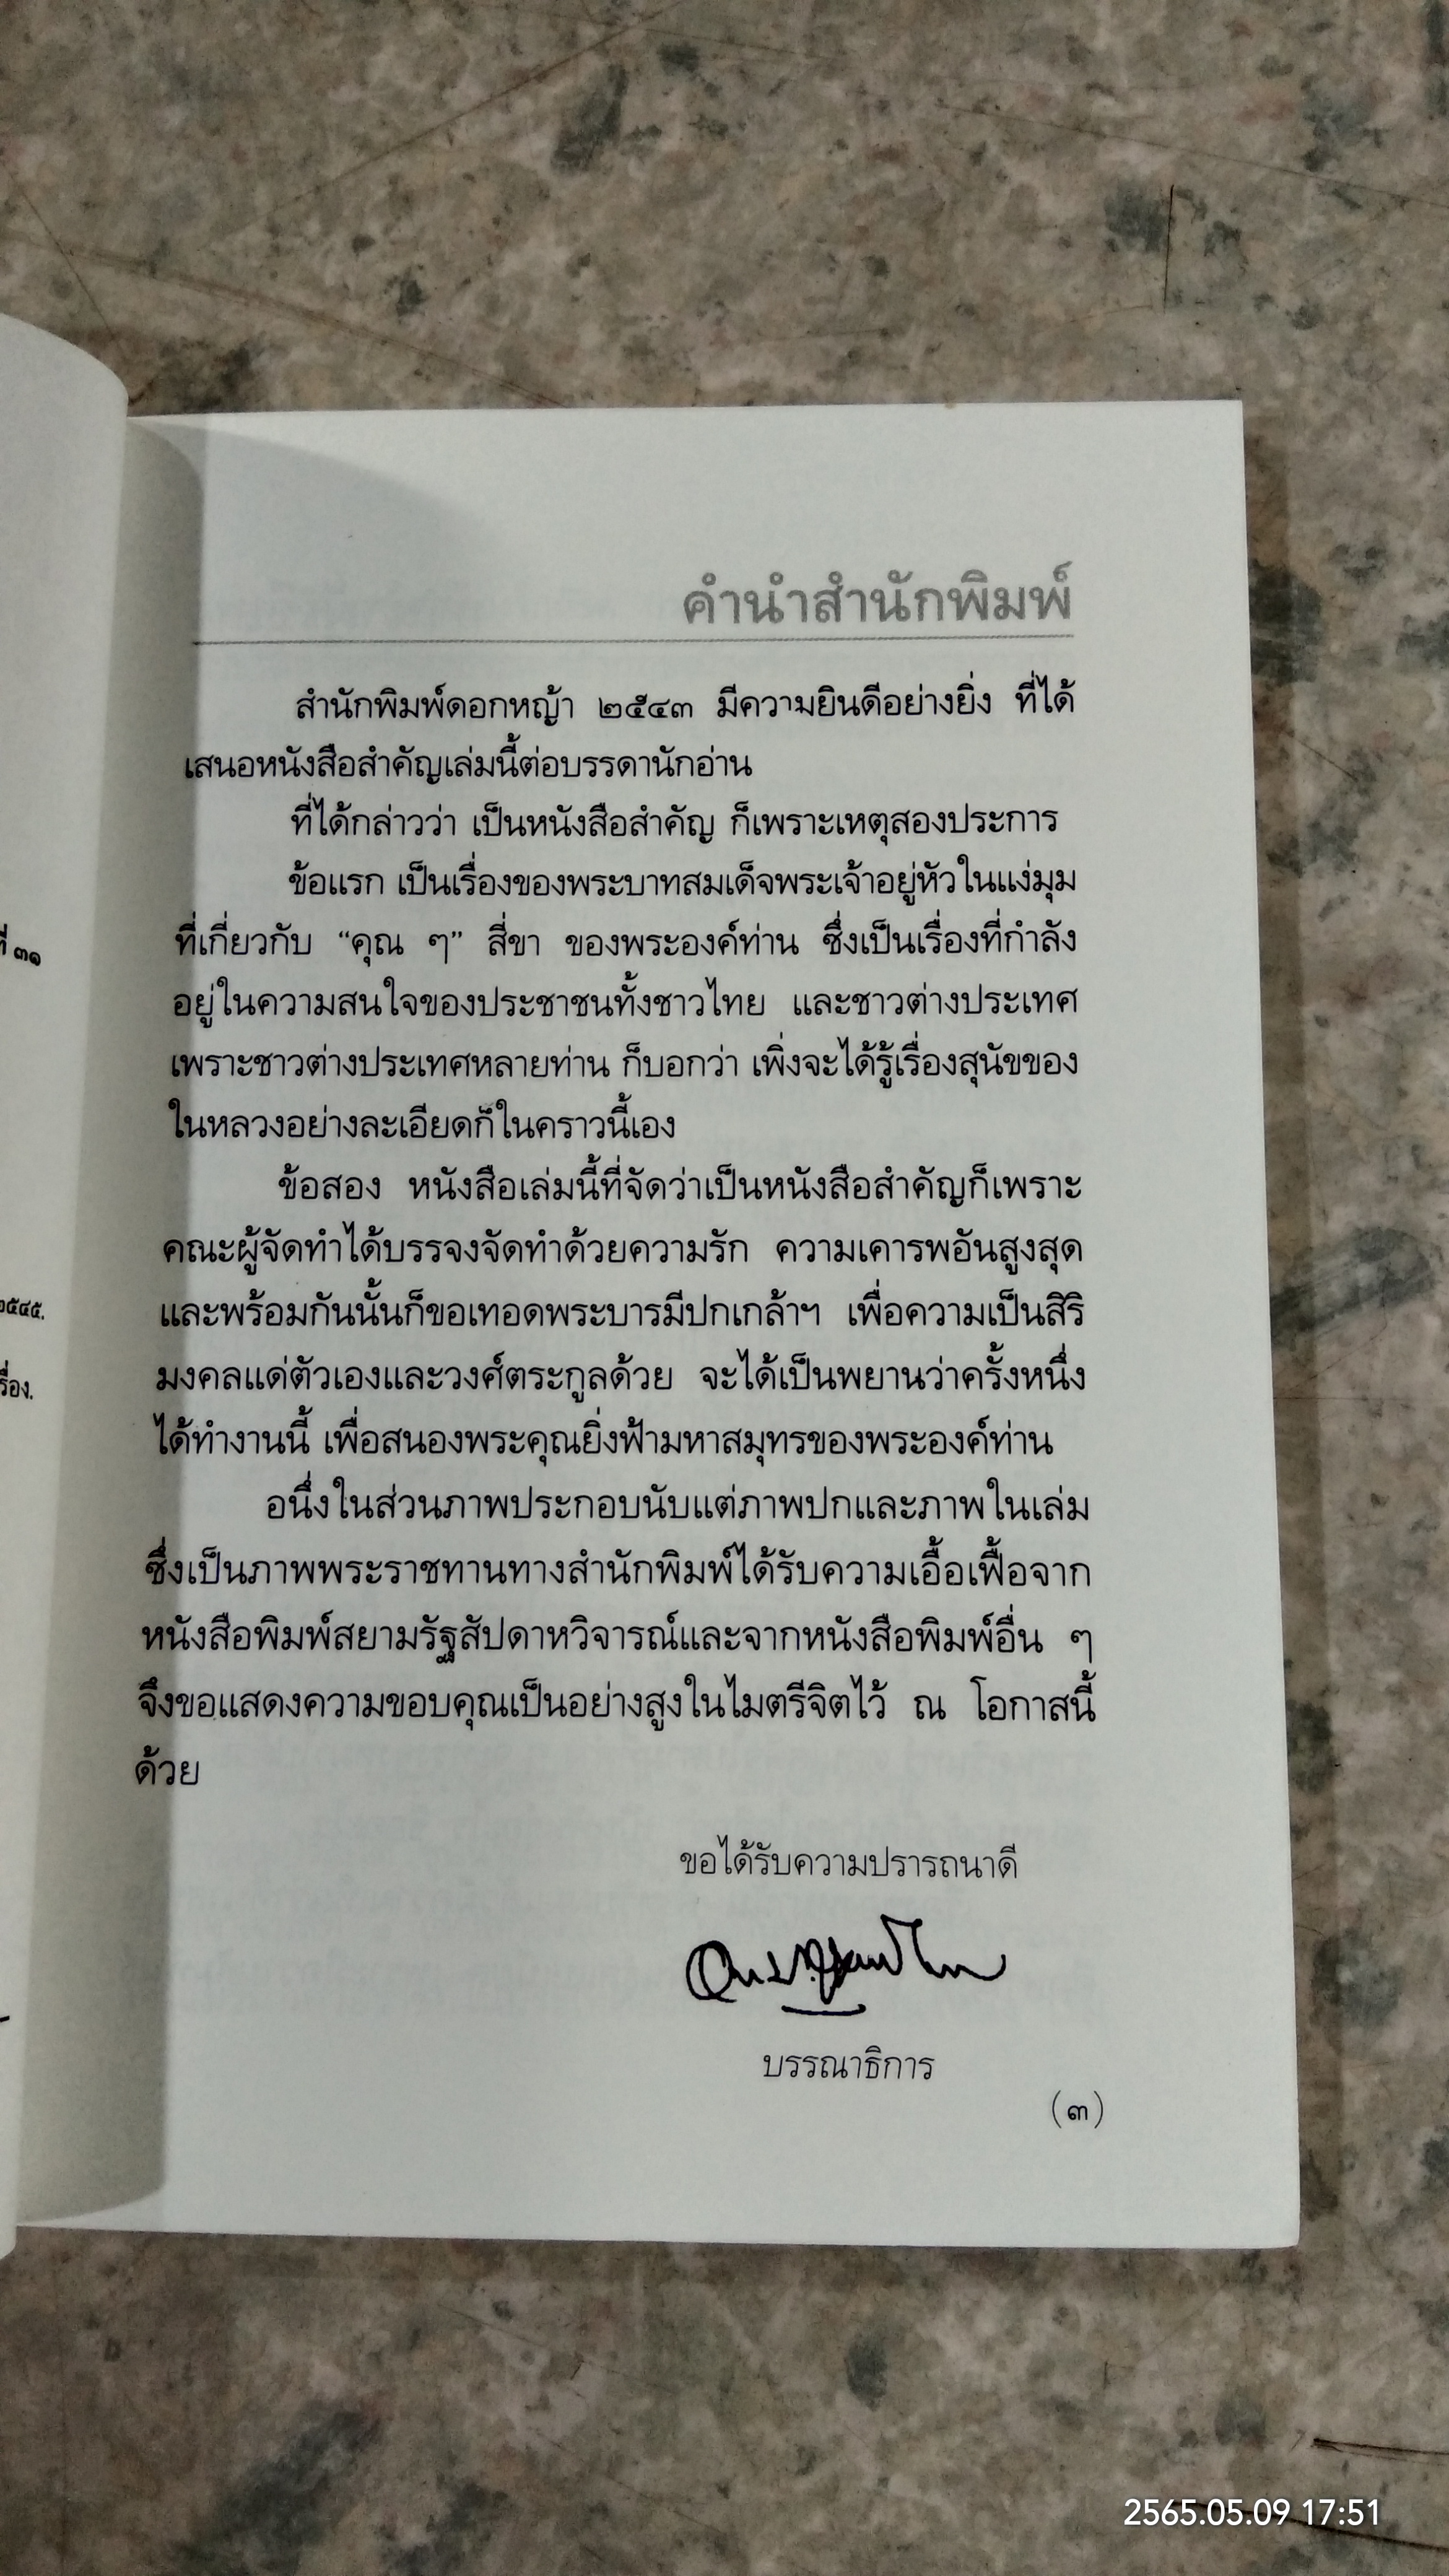 คำนำสำนักพิมพ์
สำนักพิมพ์ดอกหญ้า ๒๕๔๓ มีความยินดีอย่างยิ่ง ที่ได้
เสนอหนังสือสำคัญเล่มนี้ต่อบรรดานักอ่าน
ที่ได้กล่าวว่า เป็นหนังสือสำคัญ ก็เพราะเหตุสองประการ
ข้อแรก เป็นเรื่องของพระบาทสมเด็จพระเจ้าอยู่หัวในแง่มุม
ที่เกี่ยวกับ “คุณ ๆ” สี่ขา ของพระองค์ท่าน ซึ่งเป็นเรื่องที่กำลัง
อยู่ในความสนใจของประชาชนทั้งชาวไทย และชาวต่างประเทศ
เพราะชาวต่างประเทศหลายท่าน ก็บอกว่า เพิ่งจะได้รู้เรื่องสุนัขของ
ในหลวงอย่างละเอียดก็ในคราวนี้เอง
ข้อสอง หนังสือเล่มนี้ที่จัดว่าเป็นหนังสือสำคัญก็เพราะ
คณะผู้จัดทำได้บรรจงจัดทำด้วยความรัก ความเคารพอันสูงสุด
และพร้อมกันนั้นก็ขอเทอดพระบารมีปกเกล้าฯ เพื่อความเป็นสิริ
มงคลแด่ตัวเองและวงศ์ตระกูลด้วย จะได้เป็นพยานว่าครั้งหนึ่ง
ได้ทำงานนี้ เพื่อสนองพระคุณยิ่งฟ้ามหาสมุทรของพระองค์ท่าน
อนึ่งในส่วนภาพประกอบนับแต่ภาพปกและภาพในเล่ม
ซึ่งเป็นภาพพระราชทานทางสำนักพิมพ์ได้รับความเอื้อเฟื้อจาก
หนังสือพิมพ์สยามรัฐสัปดาหวิจารณ์และจากหนังสือพิมพ์อื่น ๆ
จึงขอแสดงความขอบคุณเป็นอย่างสูงในไมตรีจิตไว้ ณ โอกาสนี้
ด้วย
ขอได้รับความปรารถนาดี
บรรณาธิการ
(๓)
ที่ ๓๑
๒๕๔๕.
รื่อง.
2565.05.09 17:51